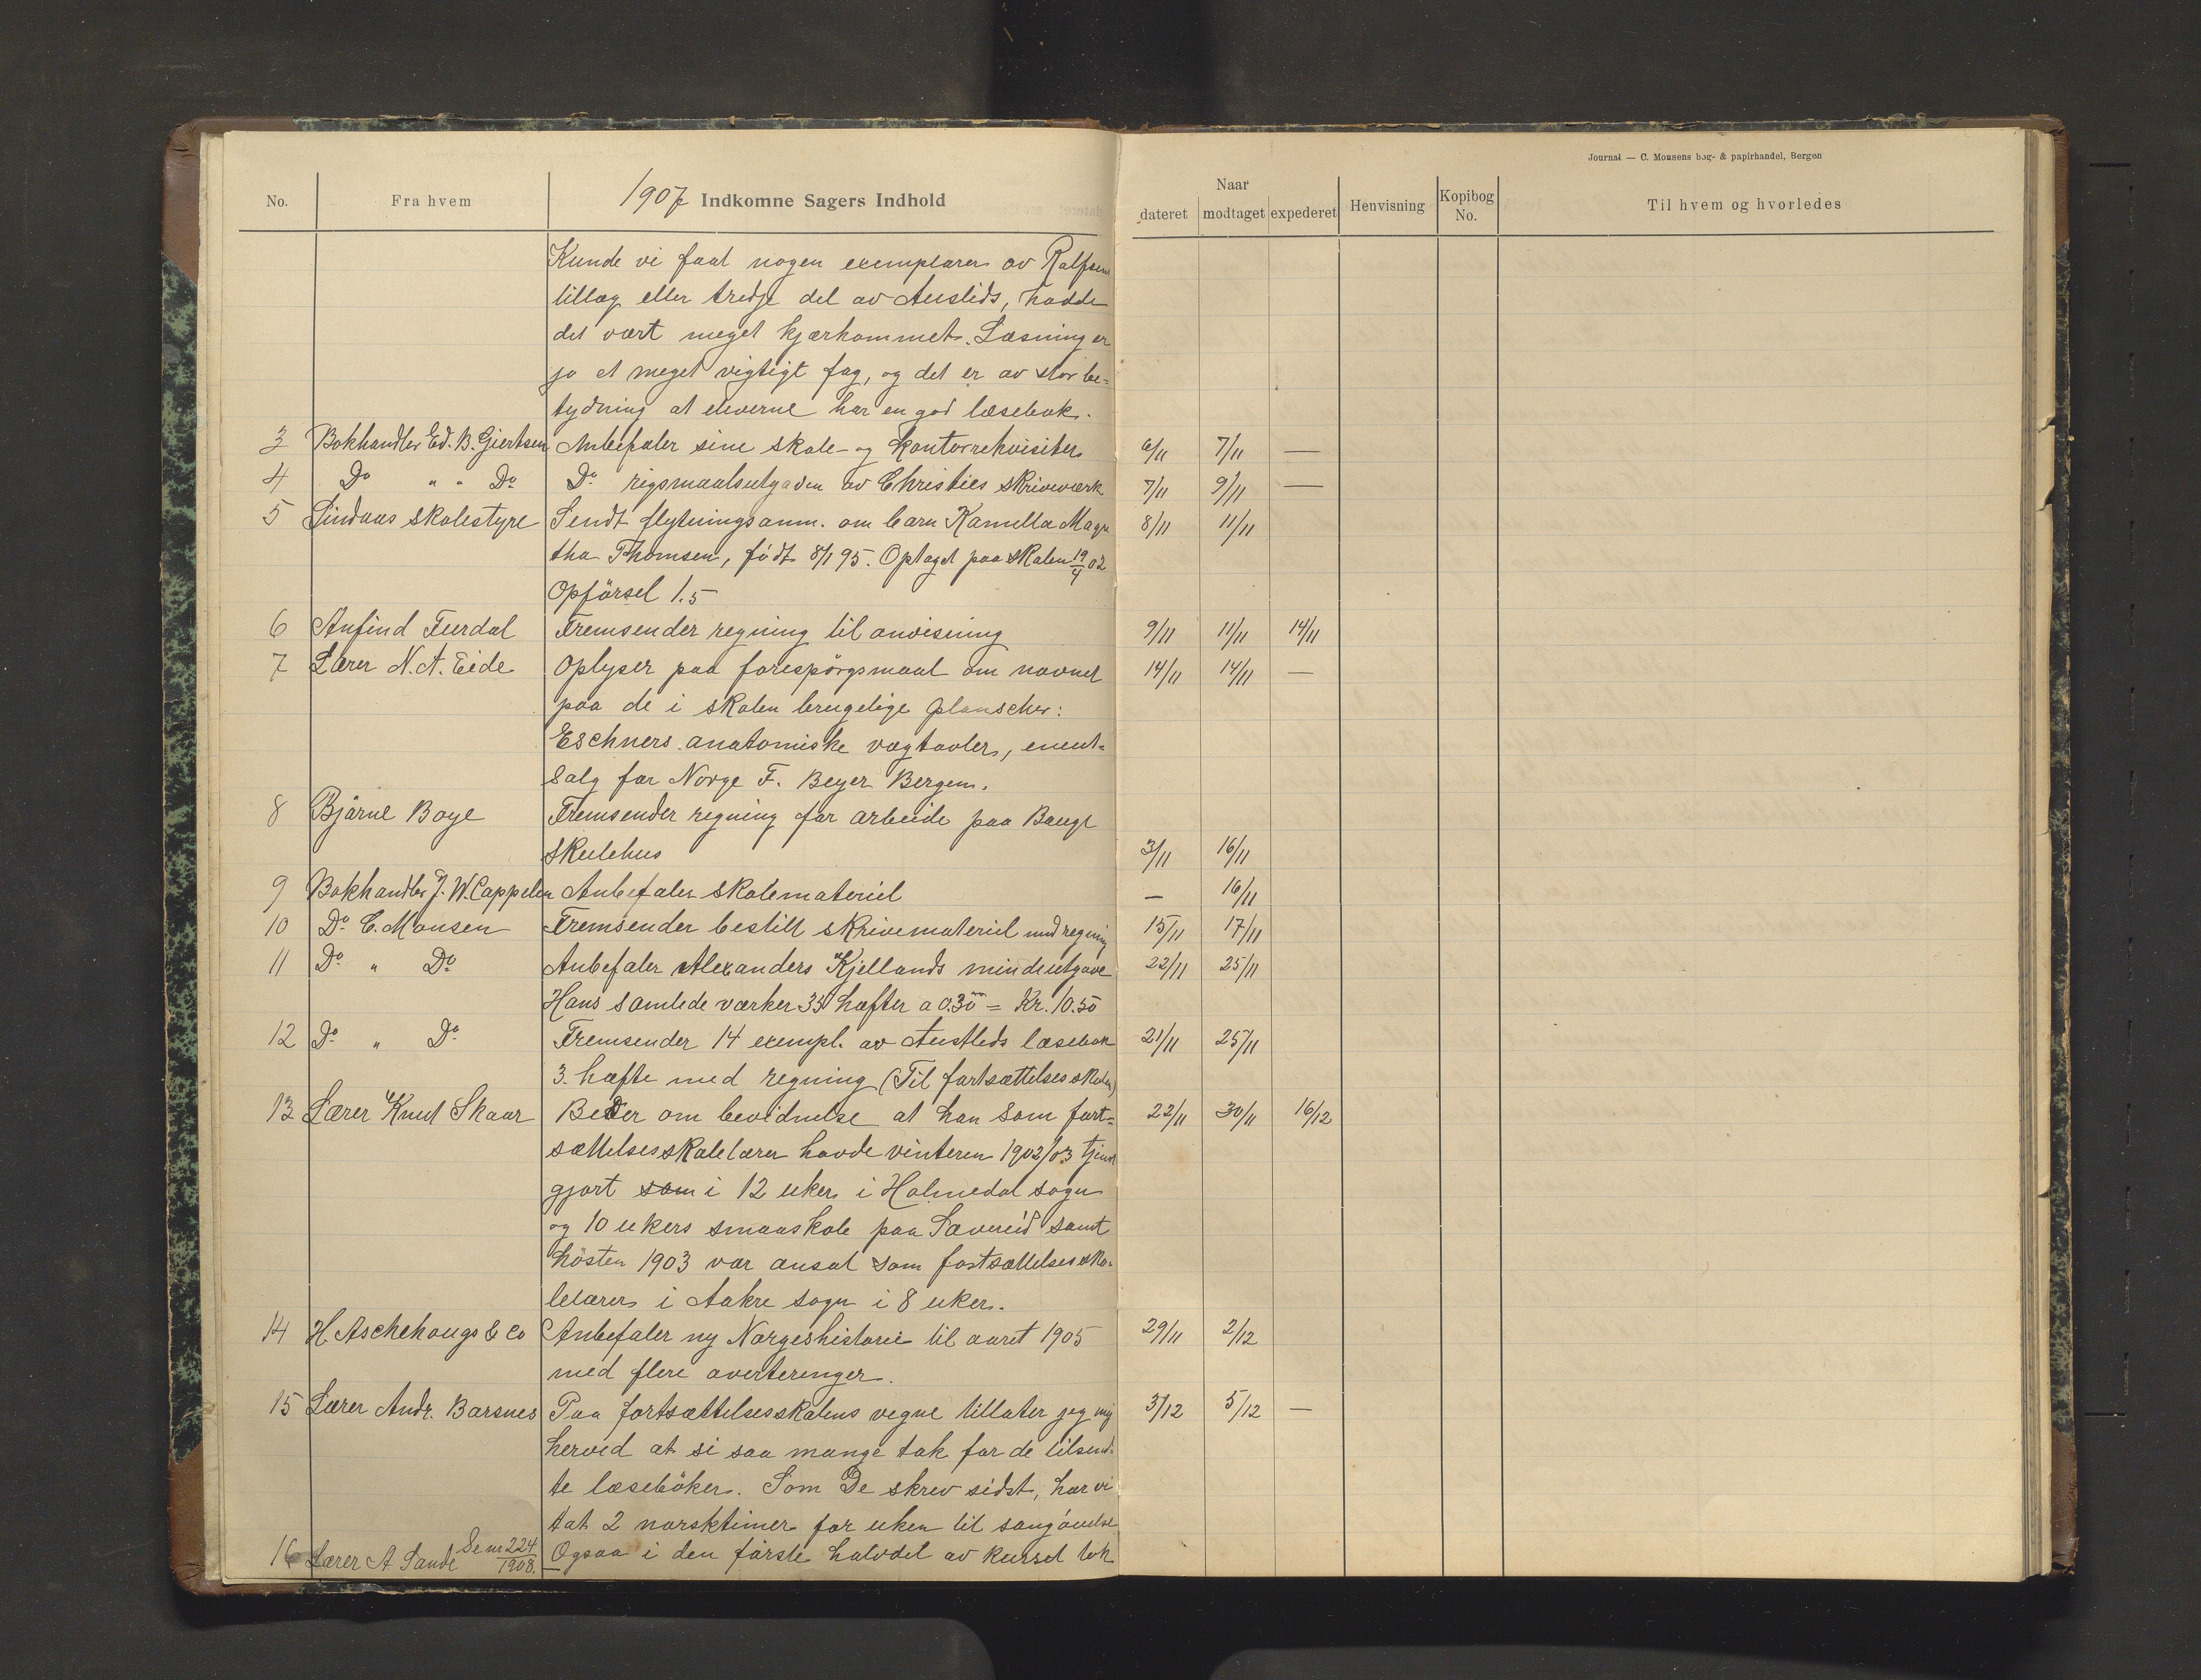 Journal — C. Monsens bog- & papirhandel, Bergen
No. Fra hvem 1907 Indkomne Sagers Indhold Naar dateret modtaget expederet Henvisning Kopibog No. Til hvem og hvorledes
Kunde vi faat nogen exemplarer av Rolfsens
tillæg eller tredje del av Austlids, hadde
det vært meget kjærkommet. Læsning er
jo et meget vigtigt fag, og det er av stor be-
tydning at eleverne har en god læsebok.
3 Bokhandler Ed. B. Giertsen Anbefaler sine skole- og kontorrekvisiter 6/11 7/11 —
4 Do " " Do Do rigsmaalsutgaven av Christies skriveverk 7/11 9/11 —
5 Lindaas skolestyre Sendt flytningsanm. om barn Kamilla Magn 8/11 11/11
tha Thomsen, født 8/1 95. Optaget paa skolen 19/4 02
Opførsel 1.5
6 Anfind Furdal Fremsender regning til anvisning 9/11 11/11 14/11
7 Lærer N. A. Eide Oplyser paa forespørgsmaal om navnet 14/11 14/11 —
paa de i skolen brugelige planscher:
Eschners anatomiske vægtavler, enent-
salg for Norge F. Beyer Bergen.
8 Bjarne Boge Fremsender regning for arbeide paa Bauge
skulehus 3/11 16/11
9 Bokhandler J. W. Cappelen Anbefaler skolemateriel — 16/11
10 Do C. Monsen Fremsender bestilt skrivemateriel med regning 15/11 17/11
11 Do " Do Anbefaler Alexanders Kjellands mindeutgave 22/11 25/11
Hans samlede værker 35 hæfter a 0.30 = Kr. 10.50
12 Do " Do Fremsender 14 exempl. av Austlids læsebok 21/11 25/11
3. hæfte med regning (Til fortsættelsesskolen)
13 Lærer Knut Skaar Beder om bevidnelse at han som fort- 22/11 30/11 16/12
sættelsesskolelærer havde vinteren 1902/03 tjenst
gjort som i 12 uker i Holmedal sogn
og 10 ukers smaaskole paa Sævereid samt
høsten 1903 var ansat som fortsættelsessko-
lelærer i Aakre sogn i 8 uker.
14 H. Aschehougs & Co Anbefaler ny Norgeshistorie til aaret 1905 29/11 2/12
med flere averteringer.
15 Lærer Andr. Barsnes Paa fortsættelsesskolens vegne tillater jeg mig 3/12 5/12 —
herved at si saa mange tak for de tilsend-
te læsebøker. Som De skrev sidst, har vi
tat 2 norsktimer for uken til sangøvelse
16 Lærer A. Sande Se nr 224/1908. Ogsaa i den første halvdel av kurset tok